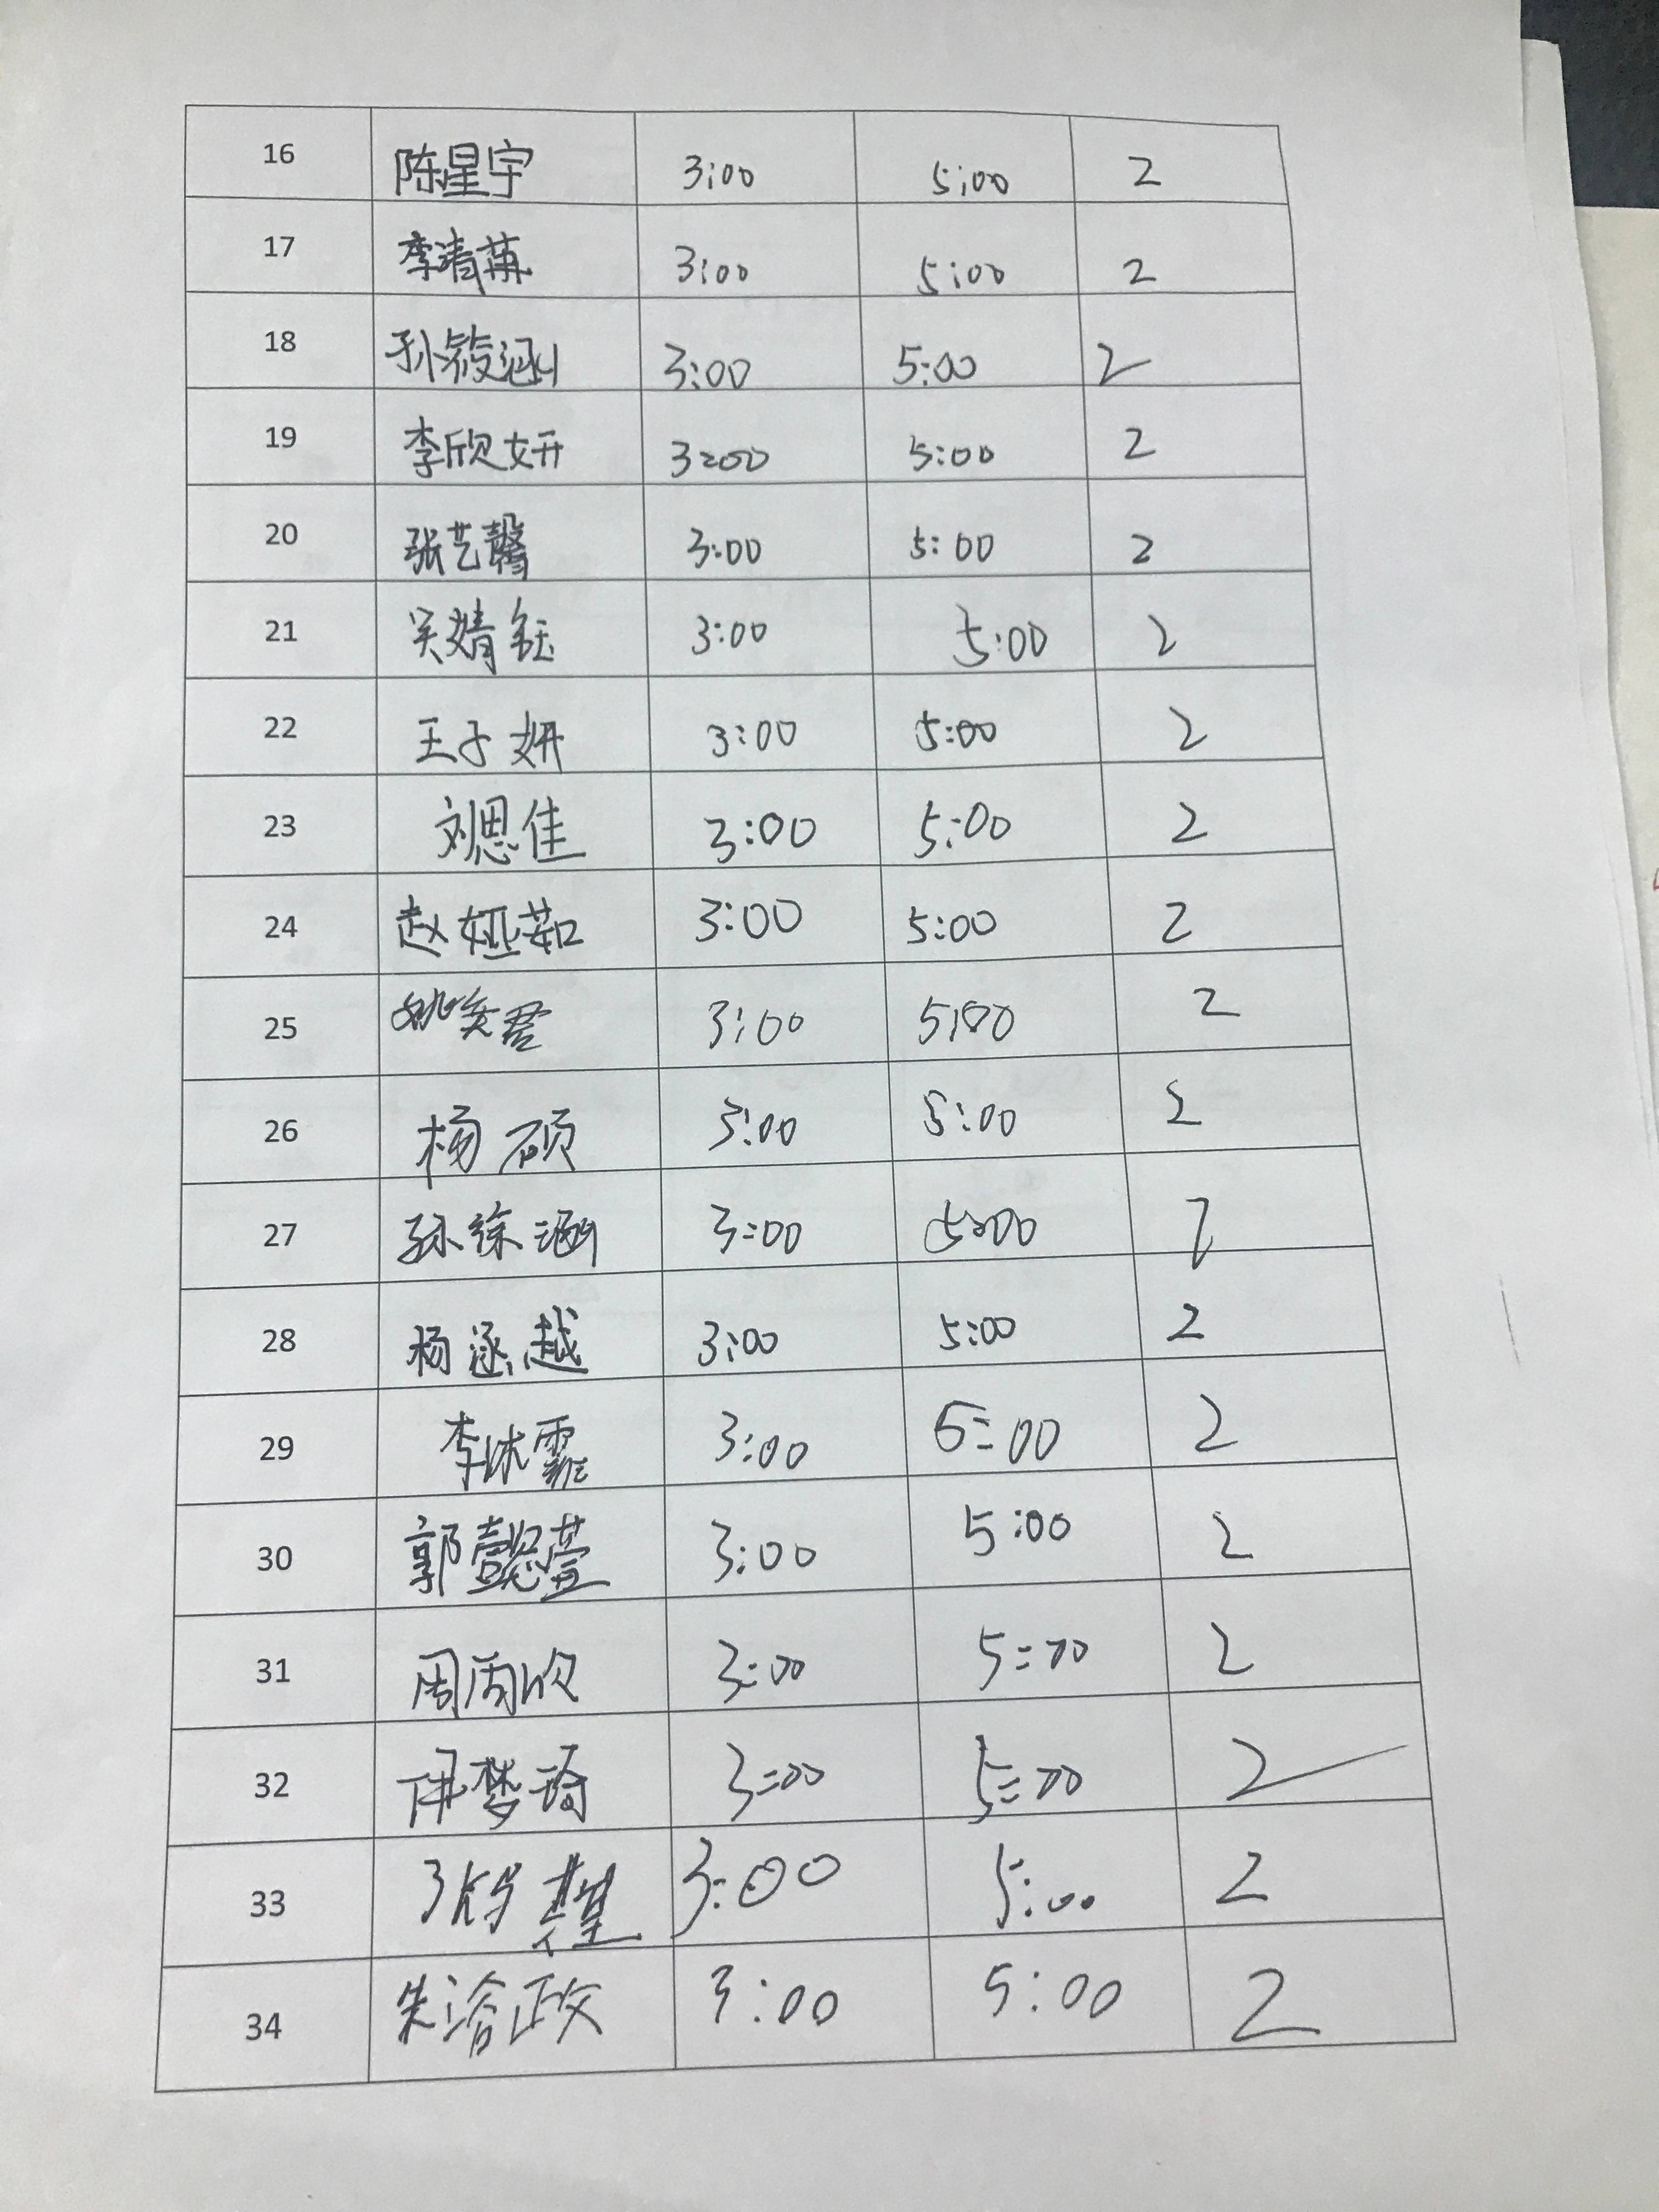 16 陈星宇 3:00 5:00 2
17 李清苒 3:00 5:00 2
18 孙筱涵 3:00 5:00 2
19 李欣妍 3:00 5:00 2
20 张艺馨 3:00 5:00 2
21 吴婧钰 3:00 5:00 2
22 王子妍 3:00 5:00 2
23 刘恩佳 3:00 5:00 2
24 赵娅茹 3:00 5:00 2
25 姚奕君 3:00 5:00 2
26 杨硕 3:00 5:00 2
27 孙徐涵 3:00 5:00 2
28 杨涵越 3:00 5:00 2
29 李沐霏 3:00 5:00 2
30 郭懿萱 3:00 5:00 2
31 周雨欣 3:00 5:00 2
32 伊梦琦 3:00 5:00 2
33 3:00 5:00 2
34 朱浴政 3:00 5:00 2